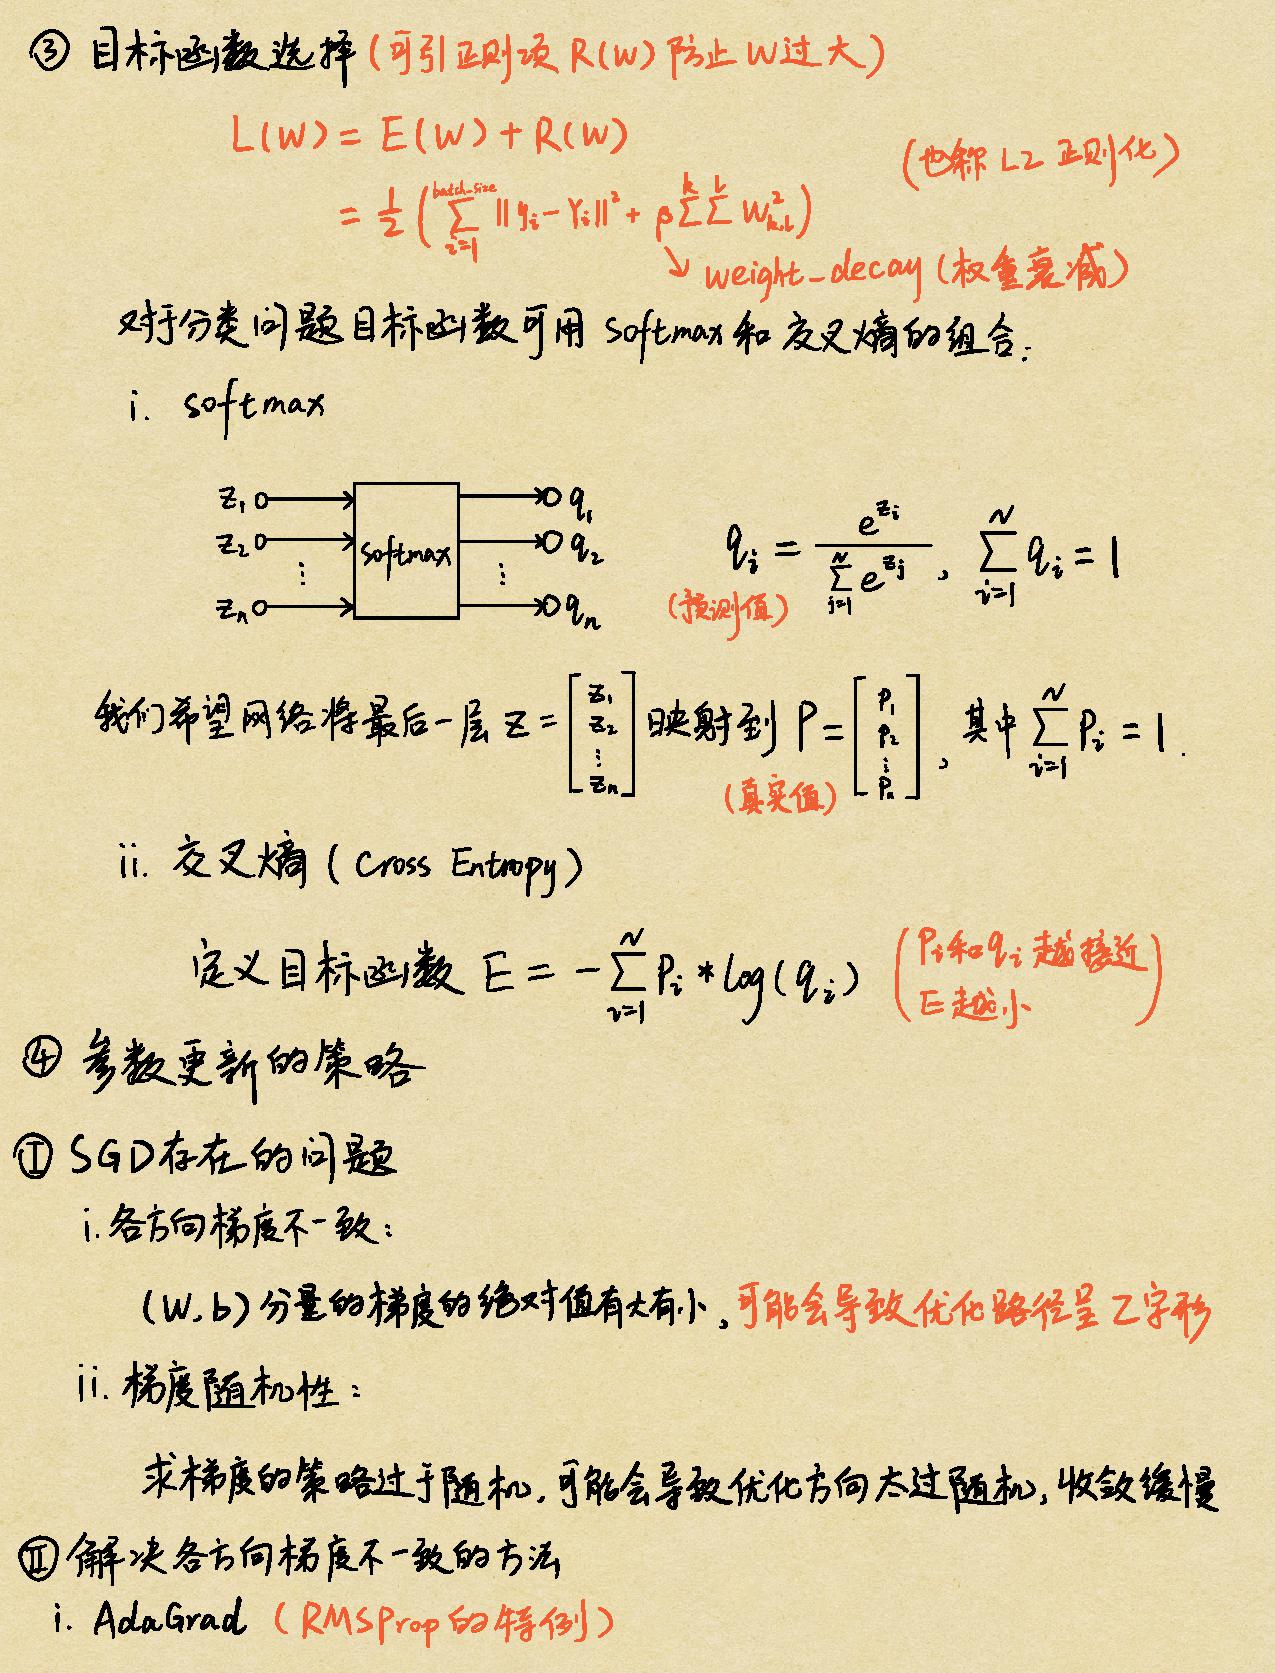 ③ 目标函数选择 (可引正则项 R(W) 防止 W过大)
L(W) = E(W) + R(W)
(也称 L2 正则化)
= 1/2 ( ∑_{i=1}^{batch_size} ||y_i - Y_i||² + β ∑^k ∑^l W²_{k,l} )
↘ weight_decay (权重衰减)
对于分类问题目标函数可用 softmax 和 交叉熵的组合:
i. softmax
z₁ softmax q₁
z₂ q₂
⋮ ⋮
zₙ qₙ
q_i = e^{z_i} / ∑_{j=1}^{N} e^{z_j}, ∑_{i=1}^{N} q_i = 1
(预测值)
我们希望网络将最后一层 z = [z₁ z₂ ⋮ zₙ] 映射到 P = [P₁ P₂ ⋮ Pₙ], 其中 ∑_{i=1}^{N} P_i = 1.
(真实值)
ii. 交叉熵 (Cross Entropy)
定义目标函数 E = - ∑_{i=1}^{N} P_i * log(q_i) (P_i和q_i 越接近
E越小)
④ 参数更新的策略
Ⓘ SGD存在的问题
i. 各方向梯度不一致:
(W,b) 分量的梯度的绝对值有大有小, 可能会导致优化路径呈Z字形
ii. 梯度随机性:
求梯度的策略过于随机, 可能会导致优化方向太过随机, 收敛缓慢
Ⅱ 解决各方向梯度不一致的方法
i. AdaGrad (RMSProp的特例)